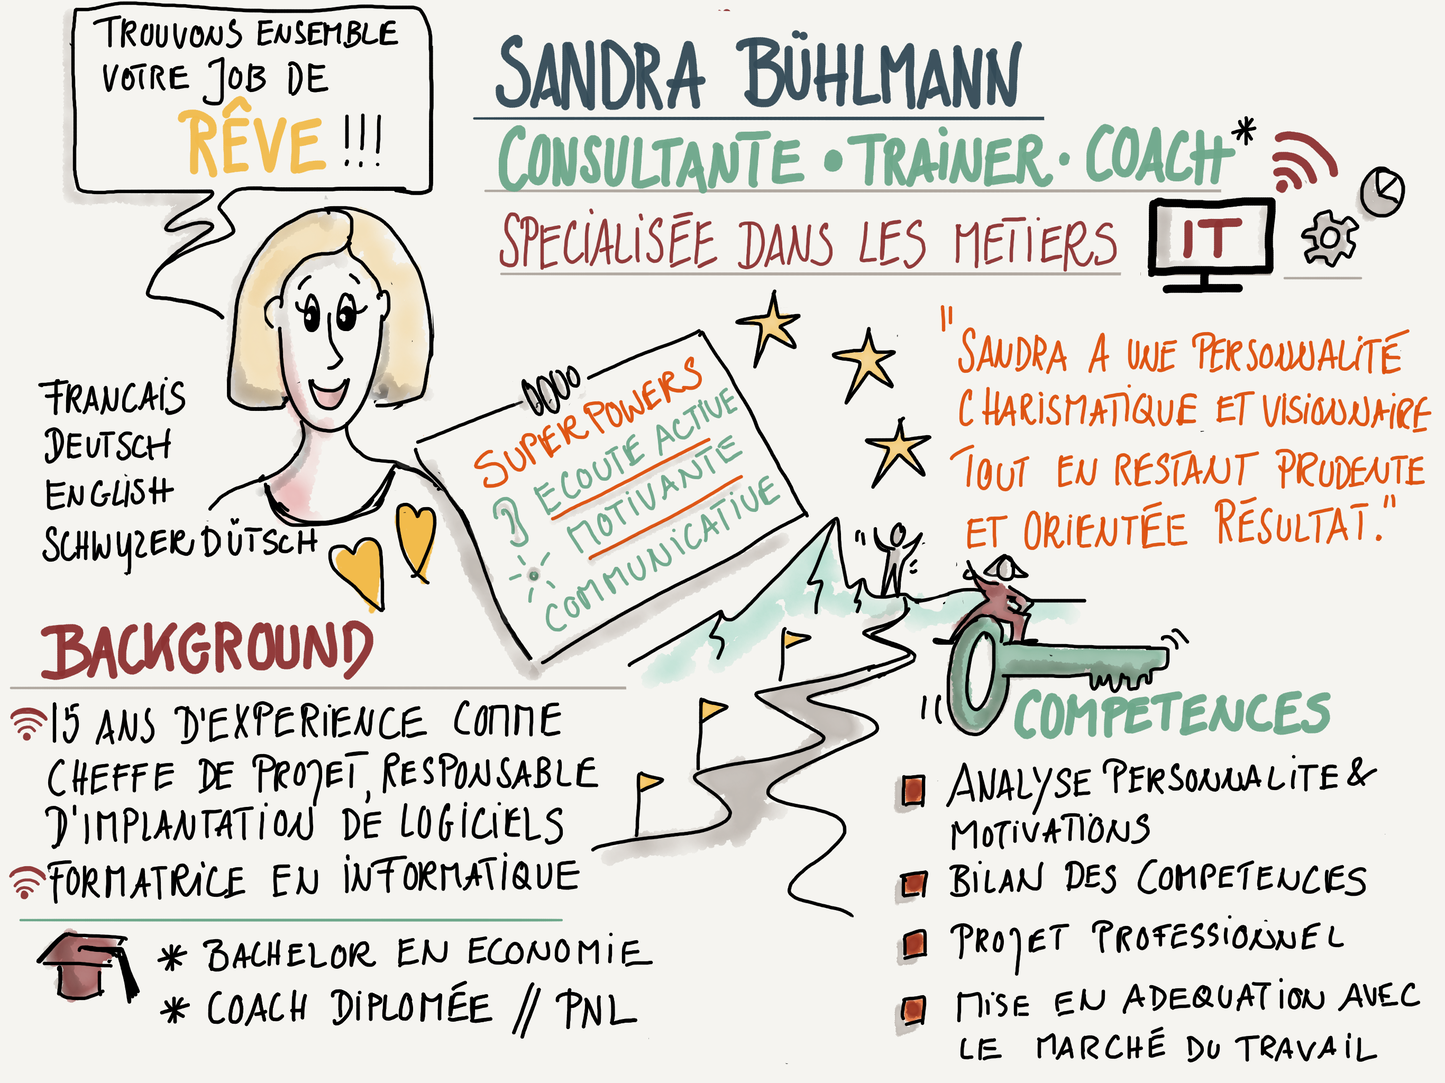 TROUVONS ENSEMBLE
VOTRE JOB DE
RÊVE !!!
SANDRA BÜHLMANN
CONSULTANTE • TRAINER • COACH*
SPECIALISÉE DANS LES METIERS
IT
FRANCAIS
DEUTSCH
ENGLISH
SCHWYZERDÜTSCH
SUPERPOWERS
ECOUTE ACTIVE
MOTIVANTE
COMMUNICATIVE
"SANDRA A UNE PERSONNALITÉ
CHARISMATIQUE ET VISIONNAIRE
TOUT EN RESTANT PRUDENTE
ET ORIENTÉE RÉSULTAT."
BACKGROUND
15 ANS D'EXPERIENCE COMME
CHEFFE DE PROJET, RESPONSABLE
D'IMPLANTATION DE LOGICIELS
FORMATRICE EN INFORMATIQUE
* BACHELOR EN ECONOMIE
* COACH DIPLOMÉE // PNL
COMPETENCES
ANALYSE PERSONNALITE &
MOTIVATIONS
BILAN DES COMPETENCES
PROJET PROFESSIONNEL
MISE EN ADEQUATION AVEC
LE MARCHÉ DU TRAVAIL